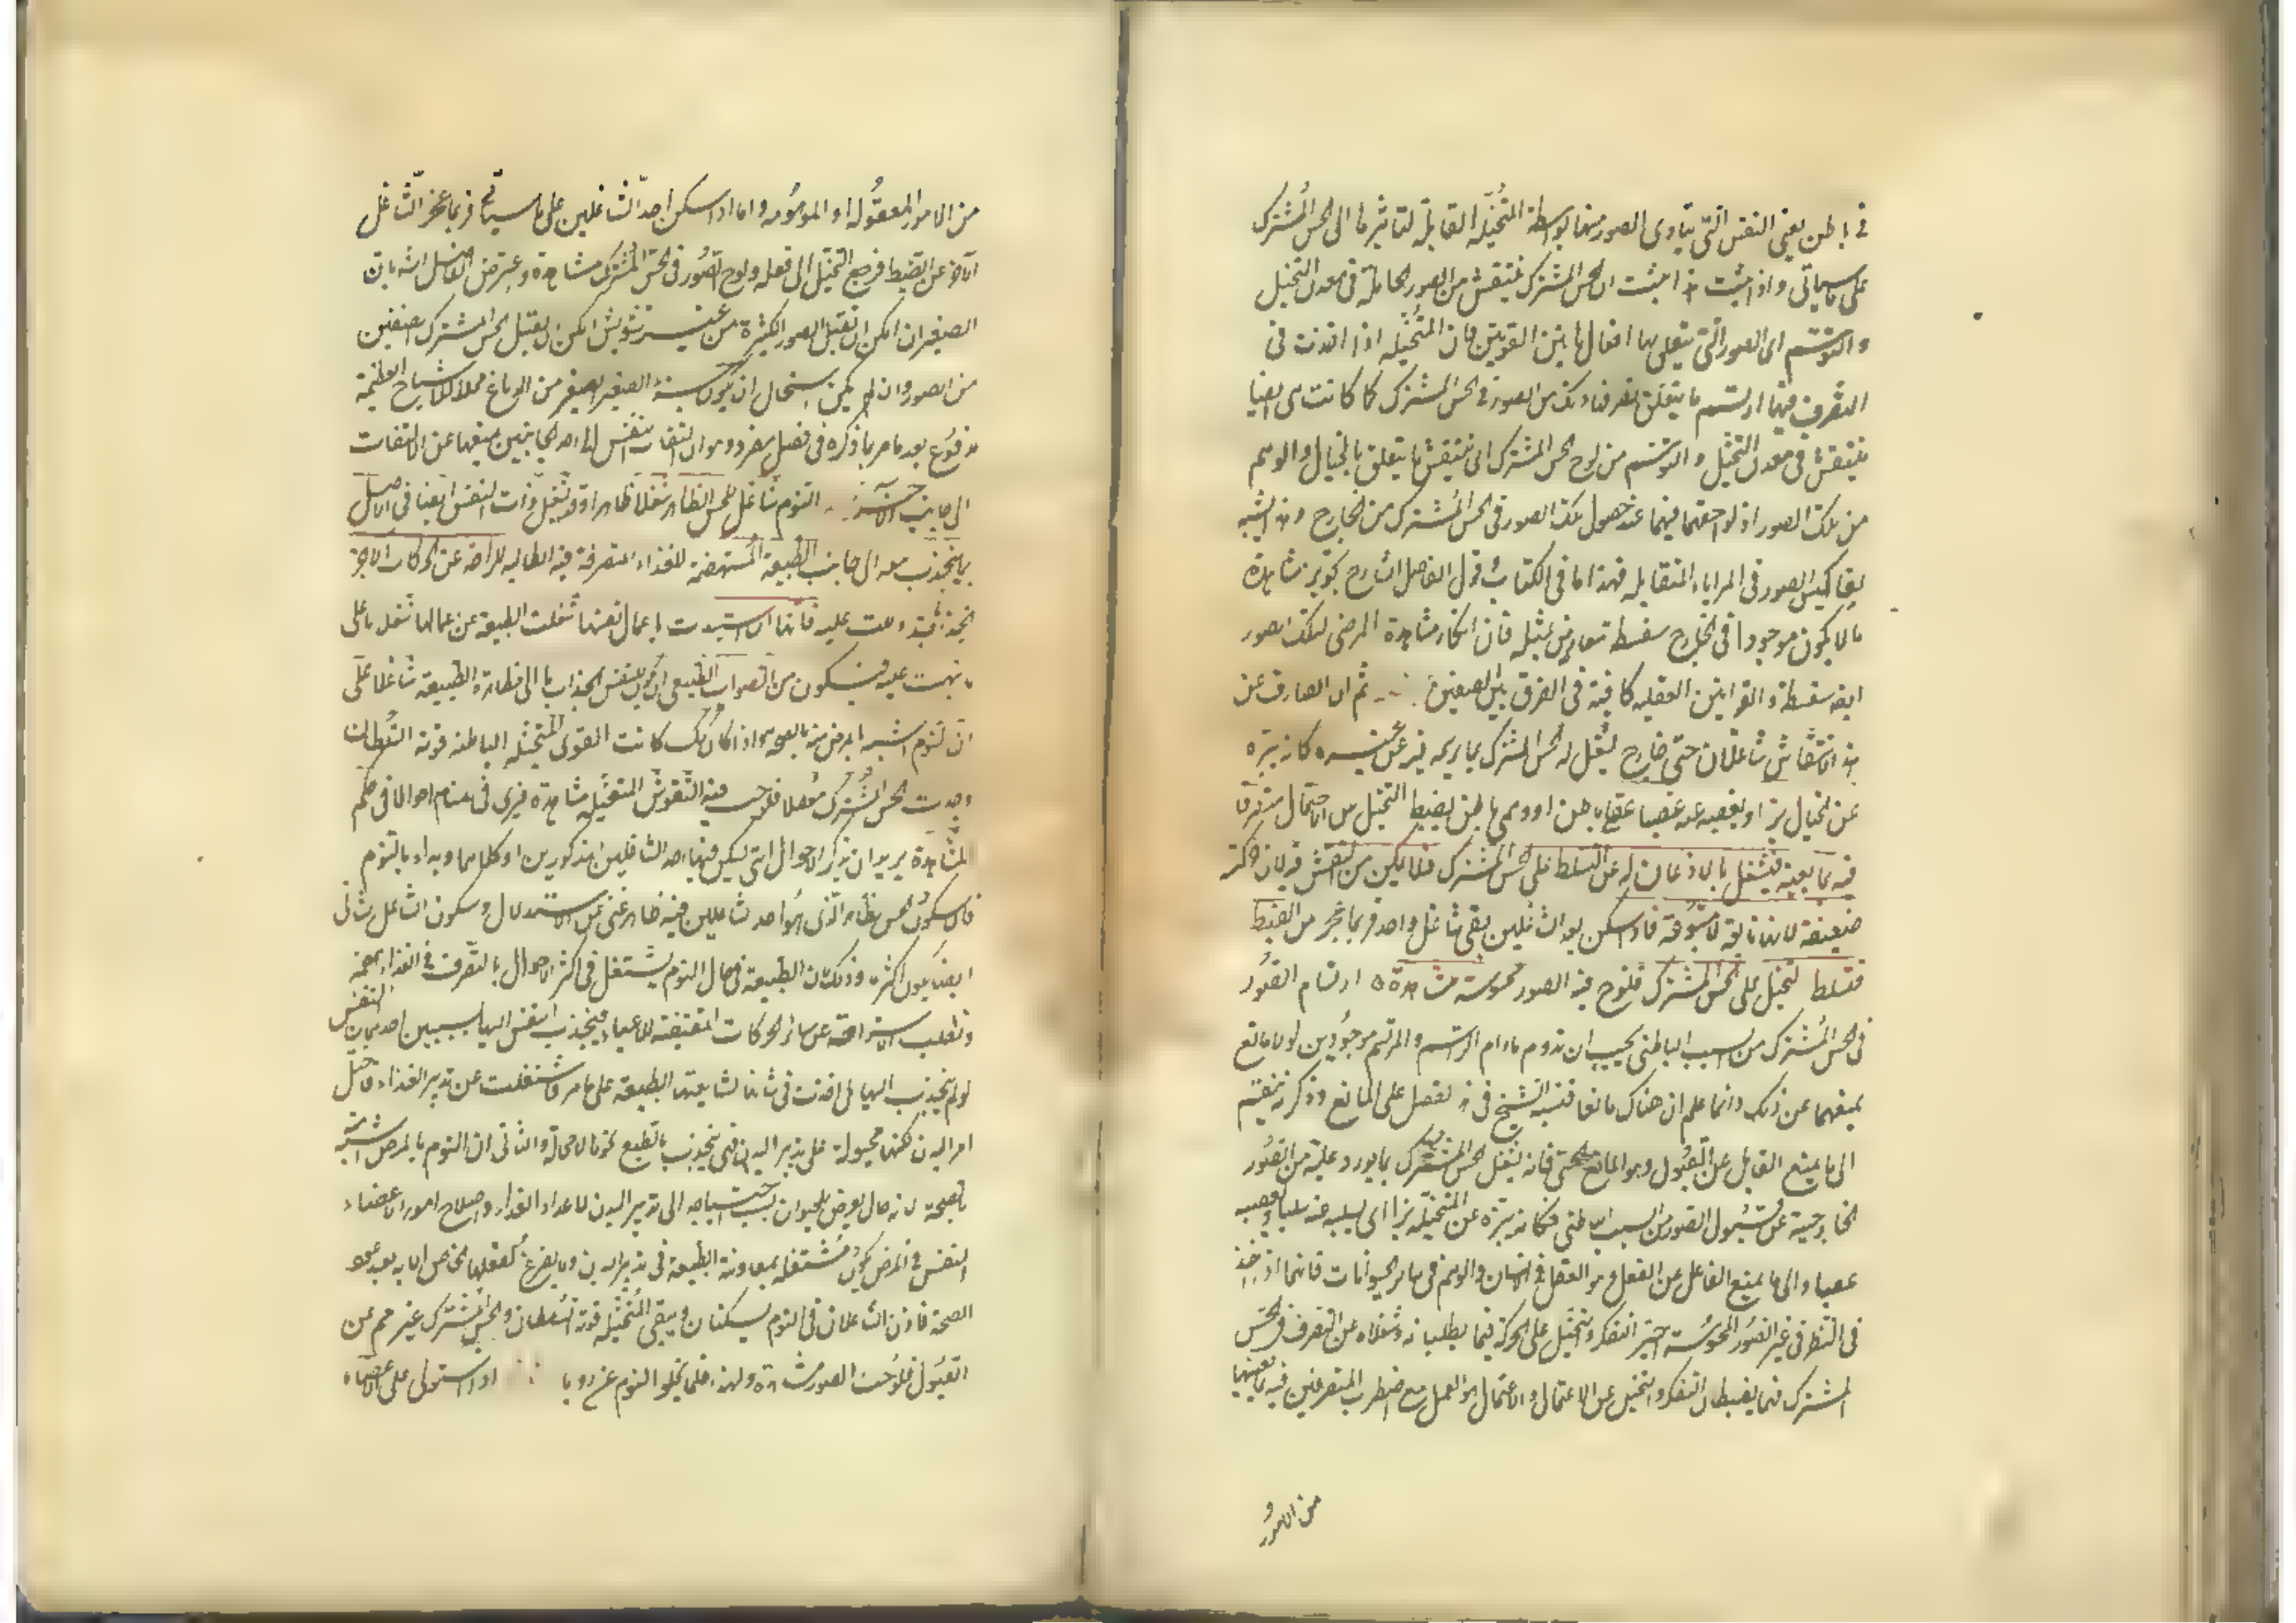 في باطن يعني النفس التي يتأدى الصور منها بواسطة المتخيلة القابلة لتأثيرها الى الحس المشترك
على ما سيأتى واذا ثبت هذا ثبت ان الحس المشترك ينتقش من الصور الجائلة في معدن التخيل
والتوهم اى الصور التي يتعلق بها افعال هاتين القوتين فان المتخيلة اذا اخذت فى
التصرف فيها ارتسم ما يتعلق تصرفها به من الصور في الحس المشترك كما كانت هى ايضا
تنتقش في معدن التخيل والتوهم من لوح الحس المشترك اى تنتقش ما يتعلق بالخيال والوهم
من تلك الصور او لواحقهما فيهما عند حصول تلك الصور في الحس المشترك من الخارج وهذا يشبه
تعاكس الصور في المرايا المتقابلة فهذا ما في الكتاب وقول الفاضل الشارح تجويز مشاهدة
ما لا يكون موجودا في الخارج سفسطة معارض بمثله فان انكار مشاهدة المرضى لتلك الصور
ايضا سفسطة والقوانين العقلية كافية في الفرق بين الصنفين ثم ان الصارف عن
هذا الانتقاش شاغلان حسى خارج يشغل لوح الحس المشترك بما يرسمه فيه عن غيره كانه يبزه
عن الخيال بزا ويغصبه عنه غصبا وعقلى باطن او وهمى باطن يضبط التخيل عن الاعتمال متصرفا
فيه بما يعنيه فيشتغل بالاذعان له عن التسلط على الحس المشترك فلا يتمكن من النقش فيه لان حركته
ضعيفة لانها تابعة لا متبوعة فاذا سكن احد الشاغلين بقى شاغل واحد فربما عجز عن الضبط
فتسلط التخيل على الحس المشترك فلوح فيه الصور محسوسة مشاهدة ارتسام الصور
فى الحس المشترك من السبب الباطنى يجب ان تدوم مادام الراسم والمرتسم موجودين لولا مانع
يمنعهما عن ذلك وانما علم ان هناك مانعا فنبه الشيخ في هذا الفصل على المانع وذكر انه ينقسم
الى ما يمنع القابل عن القبول وهو المانع الحسى فانه يشغل الحس المشترك بما يورد عليه من الصور
الخارجية عن قبول الصور من السبب الباطنى فكانه يبزه عن المتخيلة بزا اى يسلبه عنه سلبا ويغصبه
غصبا والى ما يمنع الفاعل عن الفعل وهو العقل في الانسان والوهم في سائر الحيوانات فانهما اذا اخذا
فى النظر فى غير الصور المحسوسة اجبرا التفكر والتخيل على الحركة فيما يطلبانه وشغلاه عن التصرف فى الحس
المشترك فهما يضبطان التفكر والتخيل عن الاعتمال والاعتمال هو العمل مع اضطراب المتصرفين فيه بما يعنيهما
من الامور
من الامور المعقولة او الموهومة واما اذا سكن احد الشاغلين على ما سيأتى فربما عجز الشاغل
الآخر عن الضبط فرجع التخيل الى فعله ولوح الصور فى الحس المشترك مشاهدة واعترض الفاضل الشارح بان
الصغير ان امكن ان يقبل الصور الكثيرة من غير تشويش امكن ان يقبل الحس المشترك الصنفين
من الصور وان لم يمكن استحال ان يكون الجزء الصغير من الدماغ محلا للاشباح العظيمة
مدفوع بعد ما مر بما ذكره فى فصل مفرد وهو ان التفات النفس الى احد الجانبين يمنعها عن الالتفات
الى الجانب الآخر النوم شاغل للحس الظاهر شغلا ظاهرا وقد يشغل ذات النفس ايضا في الاصل
بما ينجذب معه الى جانب الطبيعة المستهضمة للغذاء المتصرفة فيه الطالبة للراحة عن الحركات الاخر
انجذابا قد دللت عليه فانها ان استبدت باعمال نفسها شغلت الطبيعة عن اعمالها شغلا ما على
ما نبهت عليه فيكون من الصواب الطبيعى ان يكون للنفس انجذاب ما الى مظاهرة الطبيعة شاغل على
ان النوم اشبه بالمرض منه بالصحة واذا كان كذلك كانت القوى المتخيلة الباطنة قوية السلطان
وجدت الحس المشترك معطلا فلوحت فيه النقوش المتخيلة مشاهدة فيرى في المنام احوال في حكم
المشاهدة يريد ان يذكر الاحوال التى يسكن فيها احد الشاغلين المذكورين او كلاهما وبدأ بالنوم
فان سكون الحس الظاهر الذى هو احد الشاغلين فيه ظاهر غنى عن الاستدلال وسكون الشاغل الثانى
ايضا يكون اكثريا وذلك لان الطبيعة في حال النوم يشتغل في اكثر الاحوال بالتصرف في الغذاء وهضمه
وتطلب الاستراحة عن سائر الحركات المقتضية للاعياء فينجذب النفس اليها لسببين احدهما ان النفس
لو لم ينجذب اليها بل اخذت في شأنها لشايعتها الطبيعة على ما مر فاشتغلت عن تدبير الغذاء فاختل
امر البدن لكنها مجبولة على تدبير البدن فهى ينجذب بالطبع نحوها لا محالة والثانى ان النوم بالمرض اشبه منه
بالصحة لانه حال يعرض للحيوان بسبب احتياجه الى تدبير البدن لاعداد الغذاء واصلاح امور الاعضاء
النفس في المرض يكون مشتغلة بمعاونة الطبيعة فى تدبير البدن ولا يفرغ لفعلها الخاص الا بعد عود
الصحة فاذن الشاغلان فى النوم يسكنان ويبقى المتخيلة قوية السلطان والحس المشترك غير ممنوع عن
القبول فلوحت الصور مشاهدة ولهذا فلما يخلو النوم عن رؤيا اذا استولى على الاعضاء